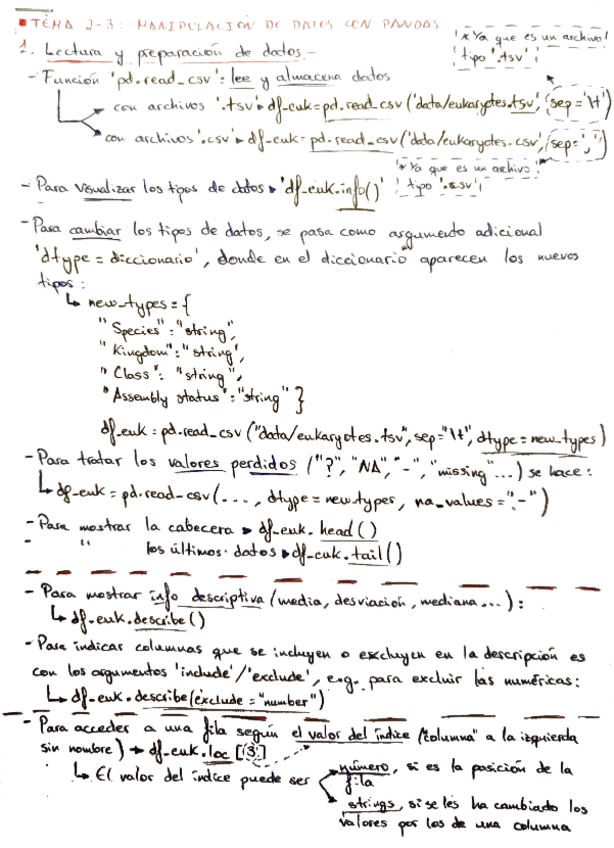 TEMA 2-3: MANIPULACIÓN DE DATOS CON PANDAS
* Ya que es un archivo
tipo '.tsv'
1. Lectura y preparación de datos -
- Función 'pd.read_csv': lee y almacena datos
con archivos '.tsv' df_euk = pd.read_csv('data/eukaryotes.tsv', sep='\t')
con archivos '.csv' df_euk = pd.read_csv('data/eukaryotes.csv', sep=',')
* Ya que es un archivo
tipo '.csv'
- Para visualizar los tipos de datos 'df_euk.info()'
- Para cambiar los tipos de datos, se pasa como argumento adicional
'dtype = diccionario', donde en el diccionario aparecen los nuevos
tipos:
new_types = {
"Species": "string",
"Kingdom": "string",
"Class": "string",
"Assembly status": "string" }
df_euk = pd.read_csv("data/eukaryotes.tsv", sep="\t", dtype = new_types)
- Para tratar los valores perdidos ("?", "NA", "-", "missing"...) se hace:
df_euk = pd.read_csv(..., dtype = new_types, na_values = "-")
- Para mostrar la cabecera df_euk.head()
- " los últimos datos df_euk.tail()
- Para mostrar info descriptiva (media, desviación, mediana...):
df_euk.describe()
- Para indicar columnas que se incluyen o excluyen en la descripción es
con los argumentos 'include'/'exclude', e.g. para excluir las numéricas:
df_euk.describe(exclude = "number")
- Para acceder a una fila según el valor del índice ("columna" a la izquierda
sin nombre) → df_euk.loc[3]
El valor del índice puede ser
número, si es la posición de la
fila
strings, si se les ha cambiado los
valores por los de una columna